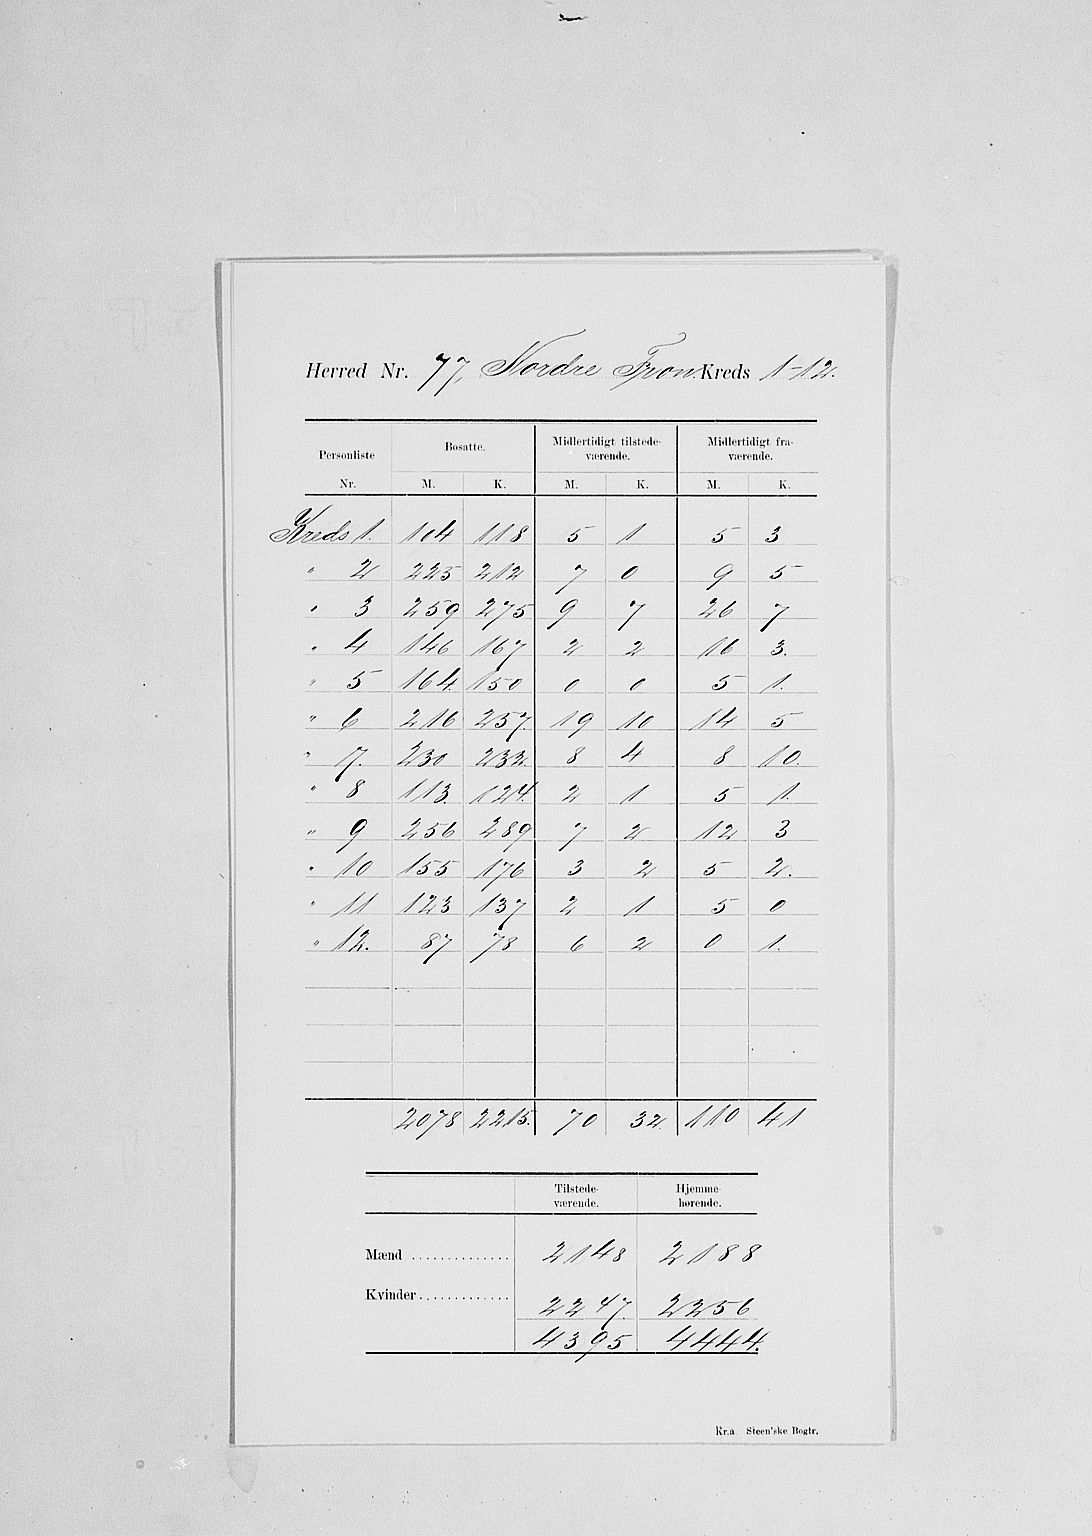 Herred Nr. 77, Nordre Fron. Kreds 1-12.
Personliste Nr. Bosatte. Midlertidigt tilstede- Midlertidigt fra-
værende. værende.
M. K. M. K. M. K.
Kreds 1. 104 118 5 1 5 3
" 2 225 212 7 0 9 5
" 3 259 275 9 7 26 7
" 4 146 167 2 2 16 3.
" 5 164. 150 0 0 5 1.
" 6 216 257. 19 10 14 5
" 7. 230 232. 8 4 8 10.
" 8 113. 124. 2 1 5 1.
" 9 256 289 7 2 12 3
" 10 155 176 3 2 5 2.
" 11 123 137 2 1 5 0
" 12. 87 78 6 2 0 1.
2078 2215. 70 32. 110 41
Tilstede- Hjemme-
værende. hørende.
Mænd .............. 2148 2188
Kvinder ............. 2247. 2256
4395 4444.
Kr.a. Steen'ske Bogtr.